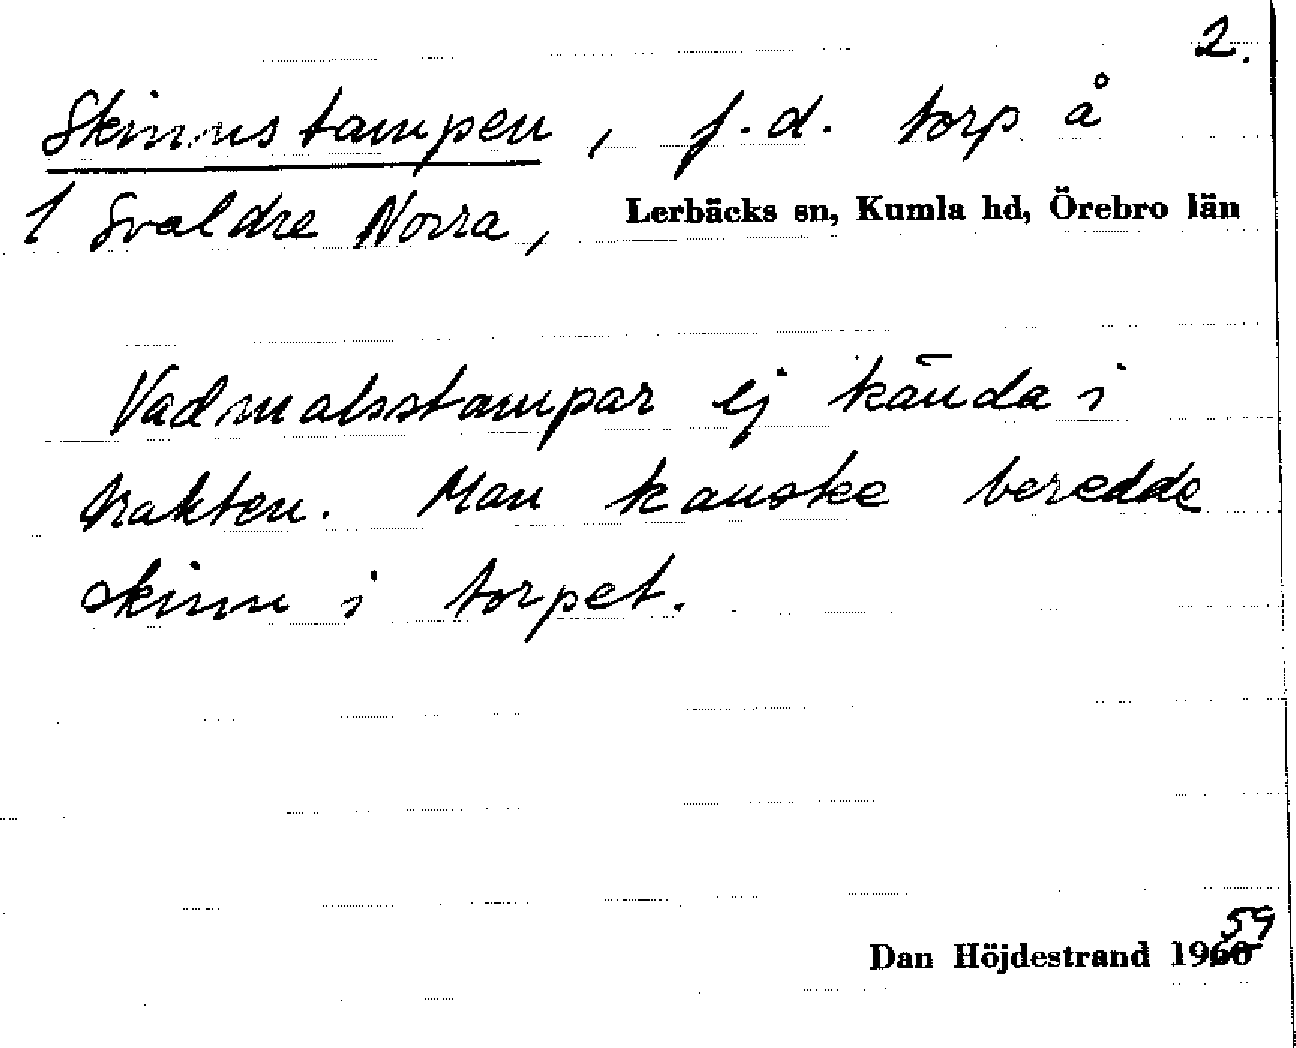 2.
Skinnstampen, f.d. torp å
1 Svaldre Norra, Lerbäcks sn, Kumla hd, Örebro län
Vadmalsstampar ej kända i
trakten. Man kanske beredde
skinn i torpet.
59
Dan Höjdestrand 1960